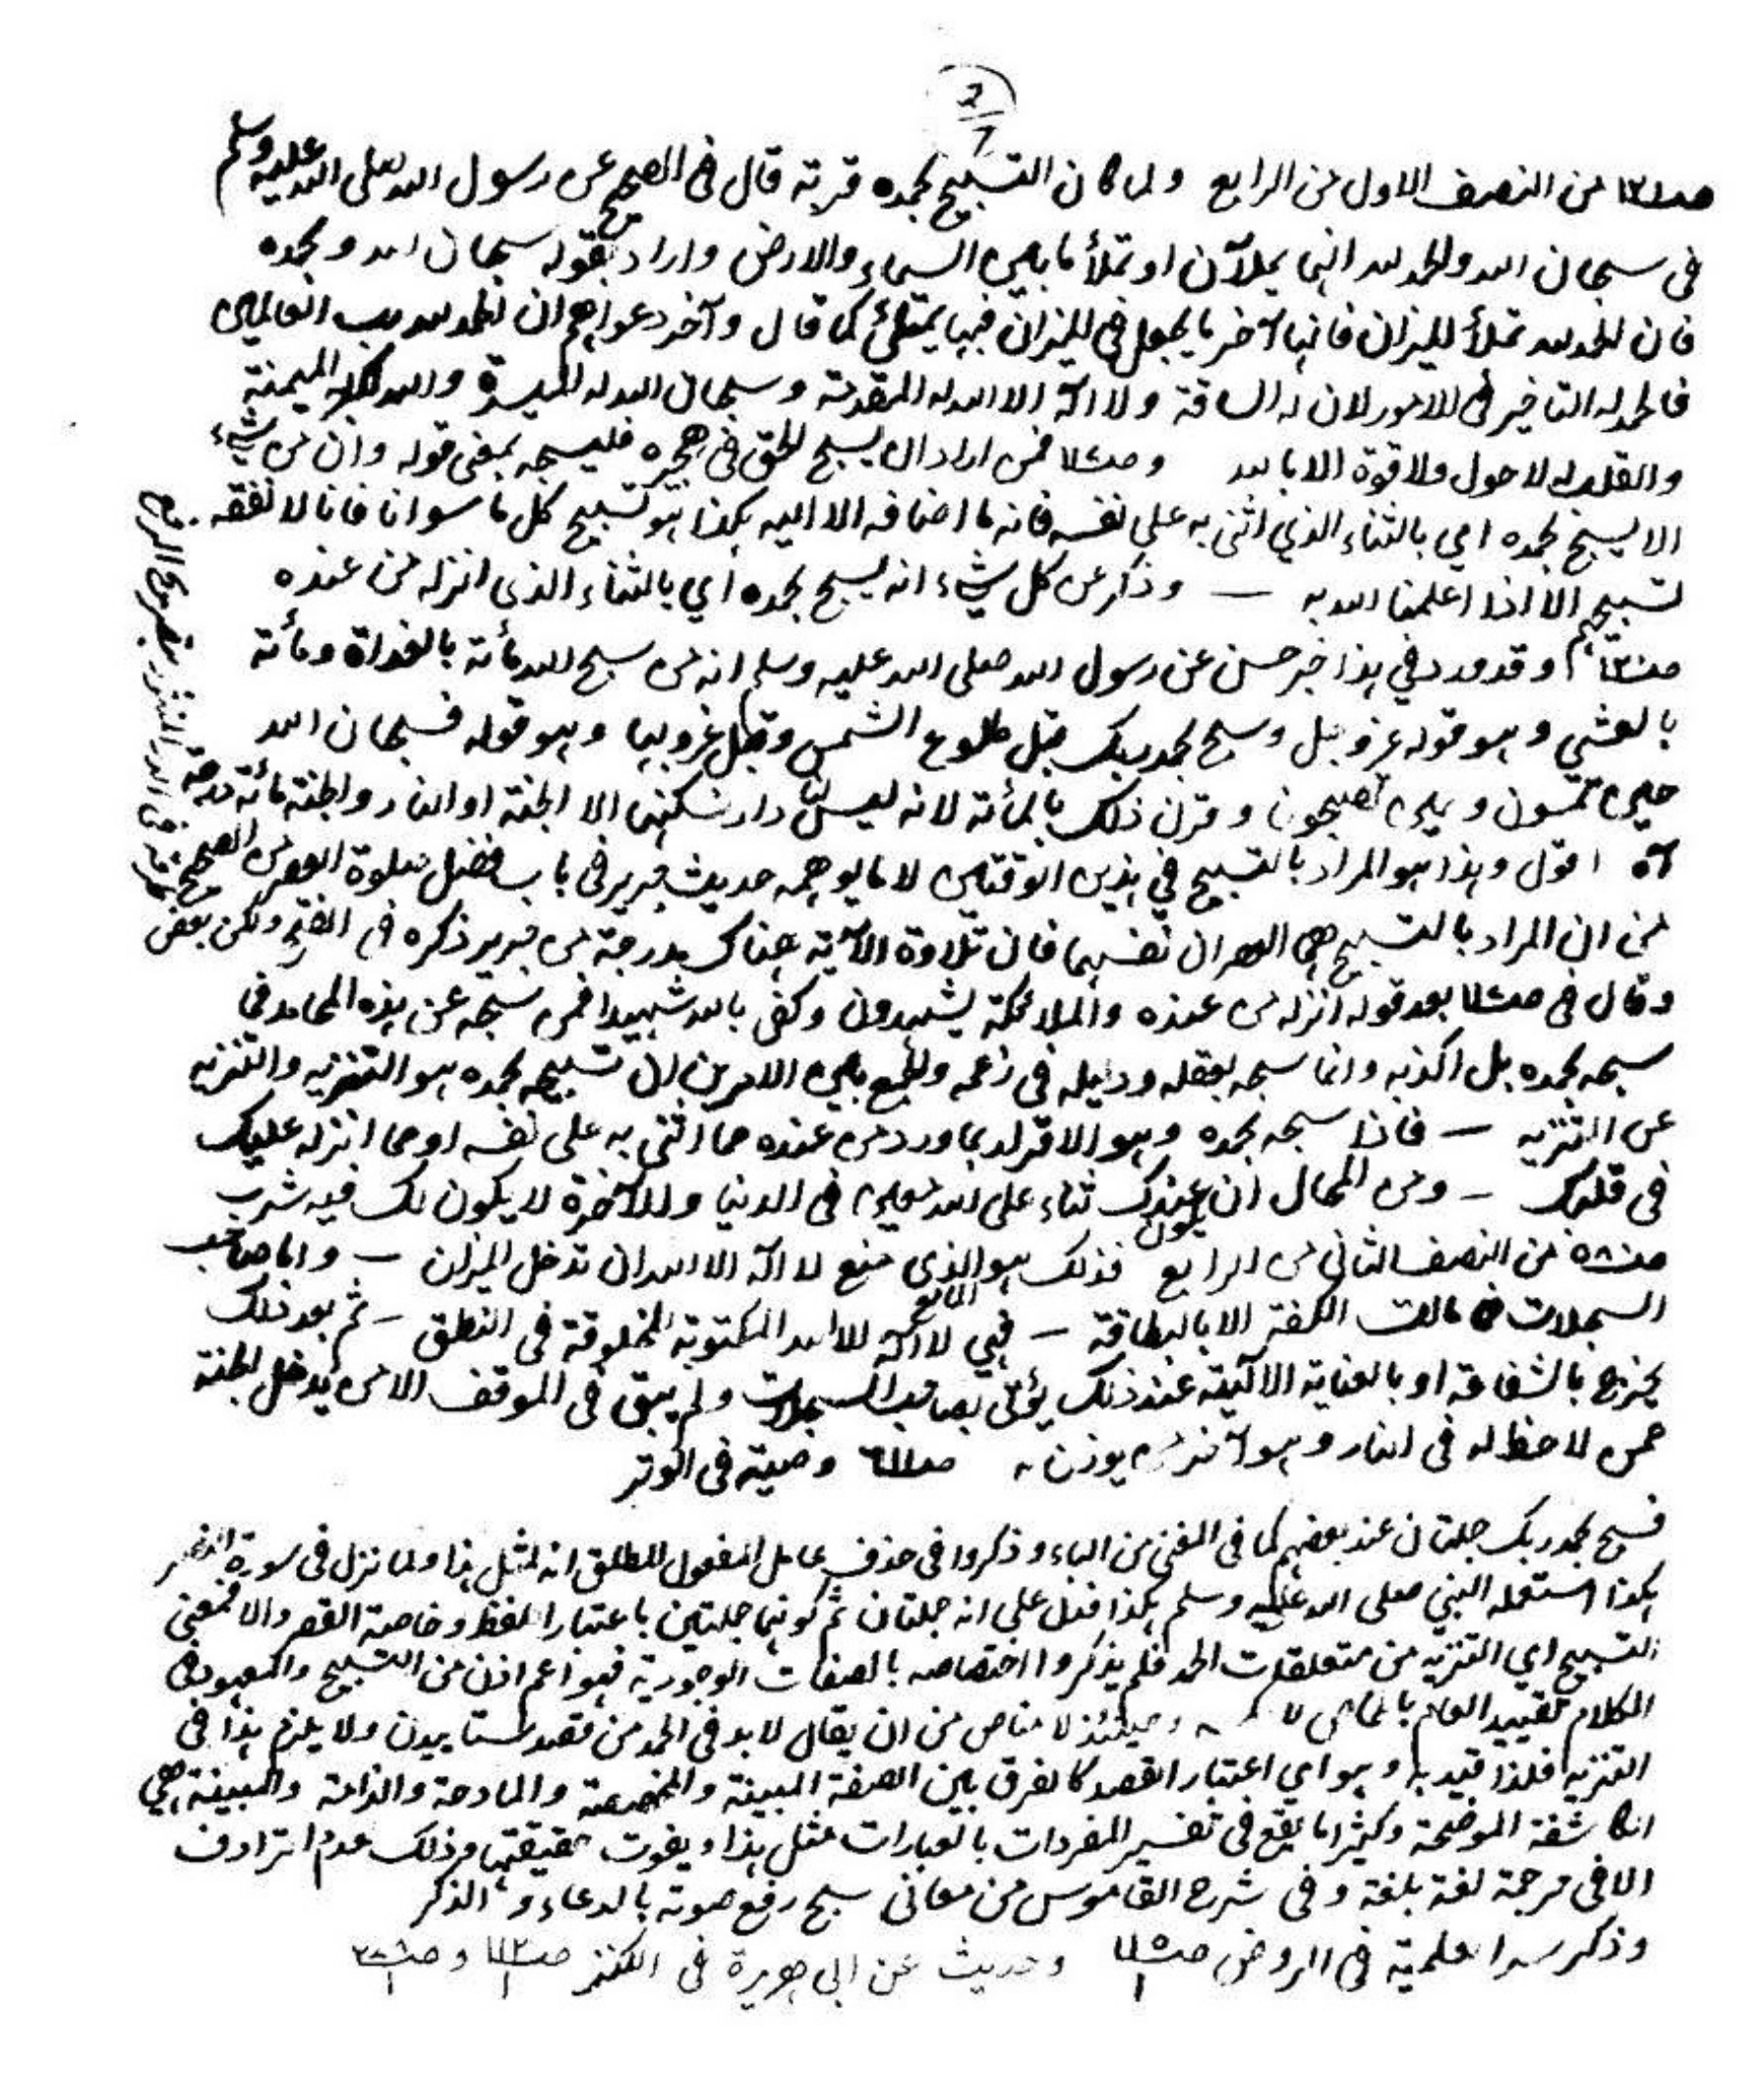 ٢/٦
من النصف الاول من الرابع ولما كان التسبيح بحمده قربة قال فى الصحيح عن رسول الله صلى الله عليه وسلم
فى سبحان الله والحمد لله انهما يملآن او تملأ ما بين السماء والارض واراد بقوله سبحان الله وبحمده
فان الحمد لله تملأ الميزان فانها آخر ما يجعل فى الميزان فبها يمتلئ كما قال وآخر دعواهم ان الحمد لله رب العالمين
فالحمد له التاخير فى الامور لان له الساقة ولا اله الا الله له المقدمة وسبحان الله له الميسرة والله اكبر له الميمنة
والقلب له لا حول ولا قوة الا بالله فمن اراد ان يسبح الحق فى فليسبحه بمعنى قوله وان من شيء
الا يسبح بحمده اي بالثناء الذي اثنى به على نفسه فانه ما اضافه الا اليه هكذا هو تسبيح كل ما سوانا فانا لا نفقه
تسبيحهم الا اذا اعلمنا الله به — وذكر عن كل شيء انه يسبح بحمده اي بالثناء الذى انزله من عنده
وقد ورد في هذا خبر حسن عن رسول الله صلى الله عليه وسلم انه من سبح الله مائة بالغداة ومأة
بالعشي وهو قوله عز وجل وسبح بحمد ربك قبل طلوع الشمس وقبل غروبها وهو قوله فسبحان الله
حين تمسون وحين تصبحون وقرن ذلك بالمأة لانه ليس لنا دار نسكنها الا الجنة او النار والجنة مائة درجة
اه اقول وهذا هو المراد بالتسبيح في هذين الوقتين لا ما يوهمه حديث جرير فى باب فضل صلوة العصر من الصحيح
من ان المراد بالتسبيح هي العصران نفسهما فان تلاوة الآية هناك مدرجة من جرير ذكره فى الفتح ولكن بعض
وقال فى بعد قوله انزله من عنده والملائكة يشهدون وكفى بالله شهيدا فمن سبحه عن هذه المحامد فما
سبحه بحمده بل اكذبه وانما سبحه بعقله ودليله فى زعمه والجمع بين الامرين ان تسبيحه بحمده هو التنزيه والتنزيه
عن التنزيه — فاذا سبحه بحمده وهو الاقرار بما ورد من عنده مما اثنى به على نفسه او مما انزله عليك
فى قلبك — ومن المحال ان يكون عندك ثناء على الله معين فى الدنيا والآخرة لا يكون لك فيه شرب
من النصف الثانى من الرابع فذلك هو الذى منع لا اله الا الله ان تدخل الميزان — واما صاحب
السجلات فما مالت الكفة الا بالبطاقة — فهي لا اله الا الله المكتوبة المخلوقة فى النطق — ثم بعد ذلك
يخرج بالشفاعة او بالعناية الالهية عند ذلك يؤتى بصاحب السجلات ولم يبق فى الموقف الا من يدخل الجنة
ممن لا حظ له فى النار وهو آخر من يوزن له وصية فى الوتر
فسبح بحمد ربك جملتان عند بعضهم كما فى المغني من الباء وذكروا فى حذف عامل المفعول المطلق انه لمثل هذا ولما نزل فى سورة النصر
هكذا استعمله النبي صلى الله عليه وسلم هكذا فدل على انه جملتان ثم كونهما جملتين باعتبار اللفظ وخاصة القصر والا فمعنى
التسبيح اي التنزيه من متعلقات الحمد فلم يذكروا اختصاصه بالصفات الوجودية فهو اعم اذن من التسبيح والمعهود فى
الكلام تقييد العام بالخاص لا وحينئذ لا مناص من ان يقال لا بد فى الحمد من قصد ولا يلزم هذا فى
التنزيه فلذا قيد به وهو اي اعتبار القصد كالفرق بين الصفة المبينة والمخصصة والمادحة والذامة والمبينة هي
الكاشفة الموضحة وكثيرا ما يقع فى تفسير المفردات بالعبارات مثل هذا ويفوت حقيقتها وذلك عدم الترادف
الا فى ترجمة لغة بلغة وفى شرح القاموس من معانى سبح رفع صوته بالدعاء والذكر
وذكر فى الروض وحديث عن ابى هريرة فى الكنز